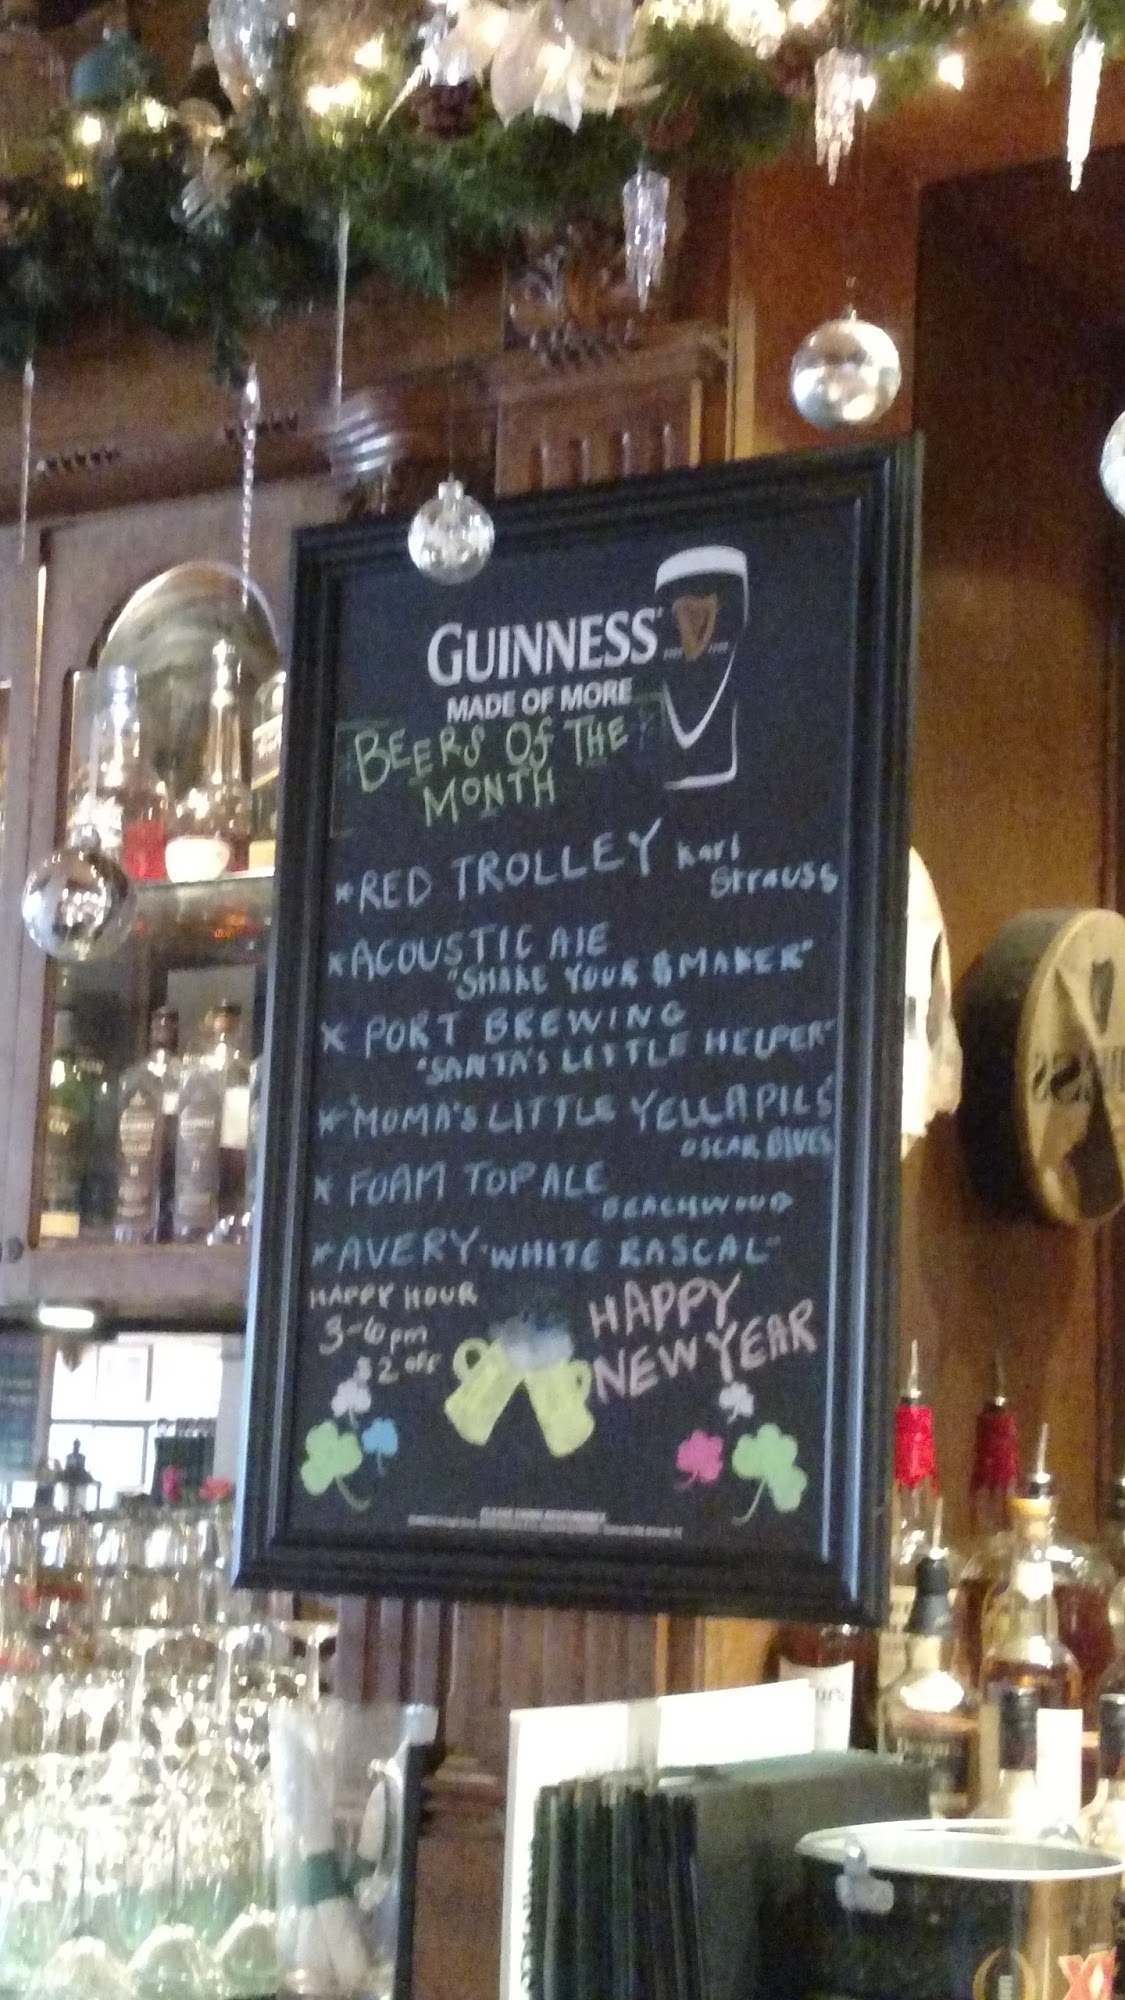 GUINNESS
MADE OF MORE
BEERS OF THE
MONTH
*RED TROLLEY Karl
Strauss
*ACOUSTIC AlE
"SHAKE YOUR $MAKER"
* PORT BREWING
"SANTA'S LITTLE HELPER"
*"MOMA'S LITTLE YELLA PILS"
OSCAR BLUES
* FOAM TOP ALE
BEACHWOOD
*AVERY "WHITE RASCAL"
HAPPY HOUR
3-6pm
$2 off
HAPPY
NEW YEAR